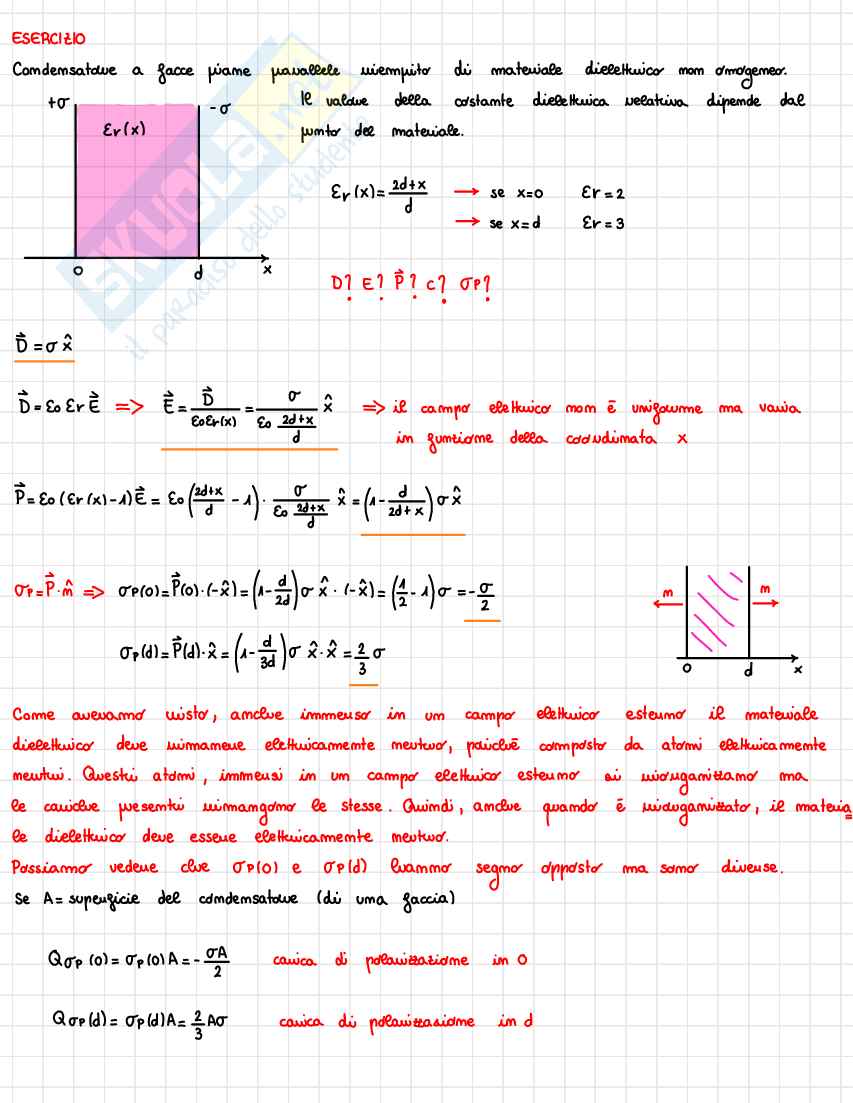 ESERCIZIO
Condensatore a facce piane parallele riempito di materiale dielettrico non omogeneo.
+σ
-σ
Il valore della costante dielettrica relativa dipende dal
εr(x)
punto del materiale.
εr(x) = (2d+x)/d → se x=0 εr=2
→ se x=d εr=3
0 d x
D? E? P⃗? C? σP?
D⃗ = σ x̂
D⃗ = ε0 εr E⃗ => E⃗ = D⃗/(ε0εr(x)) = σ/(ε0 (2d+x)/d) x̂ => il campo elettrico non è uniforme ma varia
in funzione della coordinata x
P⃗ = ε0(εr(x)-1)E⃗ = ε0((2d+x)/d - 1) · σ/(ε0 (2d+x)/d) x̂ = (1 - d/(2d+x)) σ x̂
σP = P⃗ · n̂ => σP(0) = P⃗(0)·(-x̂) = (1 - d/2d) σ x̂ · (-x̂) = (1/2 - 1) σ = -σ/2
n n
σP(d) = P⃗(d)·x̂ = (1 - d/3d) σ x̂ · x̂ = 2/3 σ
0 d x
Come avevamo visto, anche immerso in un campo elettrico esterno il materiale
dielettrico deve rimanere elettricamente neutro, poichè composto da atomi elettricamente
neutri. Questi atomi, immersi in un campo elettrico esterno si riorganizzano ma
le cariche presenti rimangono le stesse. Quindi, anche quando è riorganizzato, il materia=
le dielettrico deve essere elettricamente neutro.
Possiamo vedere che σP(0) e σP(d) hanno segno opposto ma sono diverse.
Se A= superficie del condensatore (di una faccia)
QσP(0) = σP(0)A = -σA/2 carica di polarizzazione in 0
QσP(d) = σP(d)A = 2/3 Aσ carica di polarizzazione in d
SKUOLA.net
il paradiso dello studente